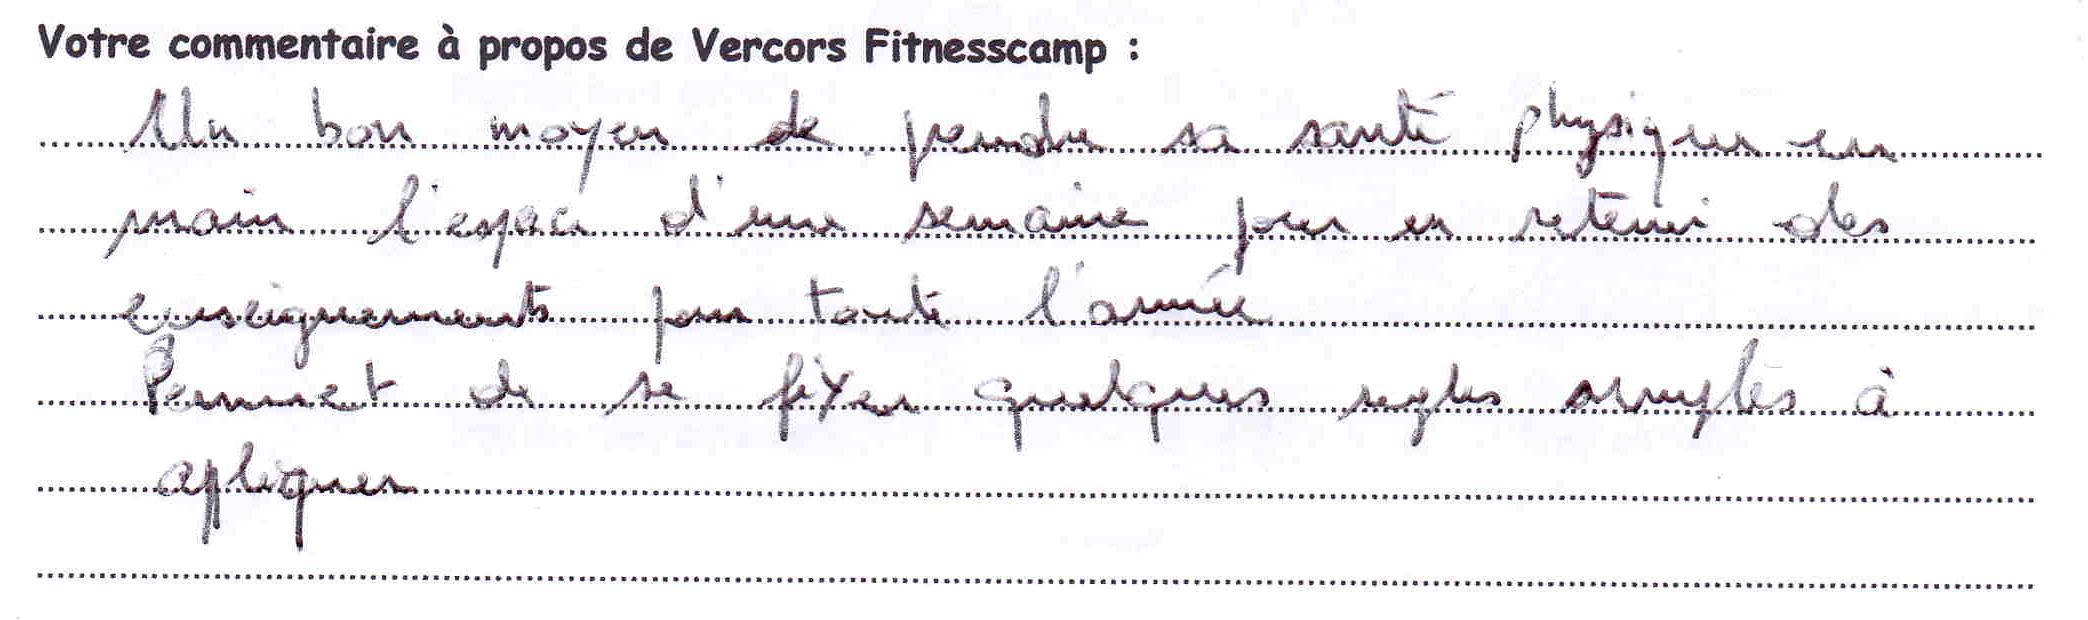 Votre commentaire à propos de Vercors Fitnesscamp :
Un bon moyen de prendre sa santé physique en
main l'espace d'une semaine pour en retenir des
enseignements pour toute l'année
Permet de se fixer quelques regles simples à
apliquer